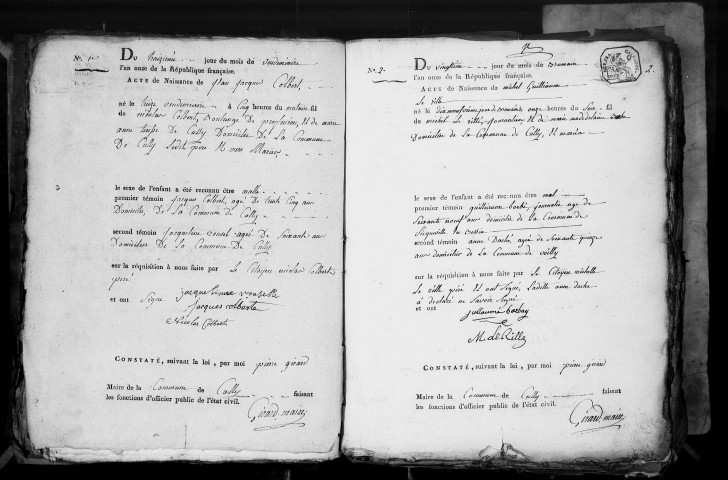 N.° 1er
Du treizième jour du mois de vendemiaire
l'an onze de la République française.
ACTE de Naissance de jean jacques Colbert
né le treize vendemiaire à Cinq heures du matin fil
de nicolas Colbert, Boulanger De profession, Et de marie
anne Domiciliés De La Commune
De Cully Ledit père Et mère Mariés
le sexe de l'enfant a été reconnu être malle
premier témoin jacques Colbert, agé De trente Cinq ans
Domicilié, De La Commune de Cully
second témoin agée De Soixante ans
Domiciliée De La Commune De Cully
sur la réquisition à nous faite par le Citoyen nicolas Colbert
père
et ont Signé
jacques colberte
Nicolas Colbert
CONSTATÉ, suivant la loi, par moi pierre girard
Maire de la Commune de Cully faisant
les fonctions d'officier public de l'état civil.
Girard maire
N.° 2.
2.
Du vingtième jour du mois de Brumaire
l'an onze de la République française.
ACTE de Naissance de michel Guilliaume
Le ville
né le de brumaire onze heures du Soir fil
de michel Le ville, Et de marie madelaine
Domiciliés de La Commune de Cully, Et mariés
le sexe de l'enfant a été reconnu être mal
premier témoin guilliaume barbé, age de
Soixante neuf ans domicilié de La Commune de
second témoin anne Duché, agée de Soixante quinze
ans domiciliée de La Commune de
sur la réquisition à nous faite par le Citoyen michelle
Le ville père Et ont Signé, Ladite anne duche
a déclaré ne Savoir Signé
et ont
guillaume barbey
M. le Ville
CONSTATÉ, suivant la loi, par moi pierre girard
Maire de la Commune de Cully faisant
les fonctions d'officier public de l'état civil.
Girard maire